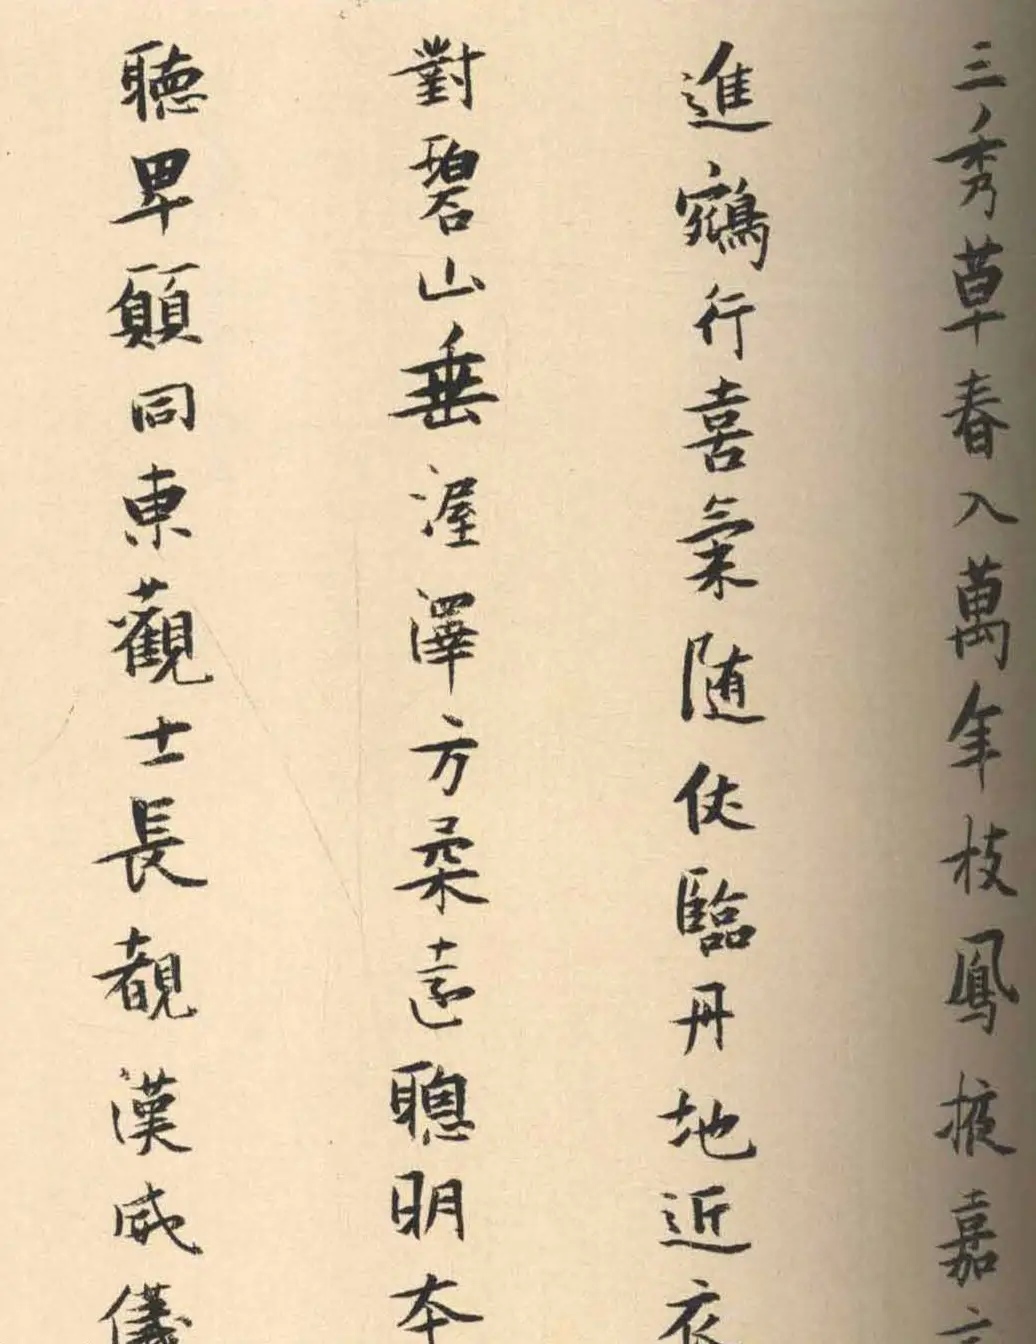 三秀草春入萬年枝鳳掖嘉
進鵷行喜氣随仗臨丹地近衣
對碧山垂渥澤方柔遠聰明本
聴卑願同東觀士長覩漢威儀